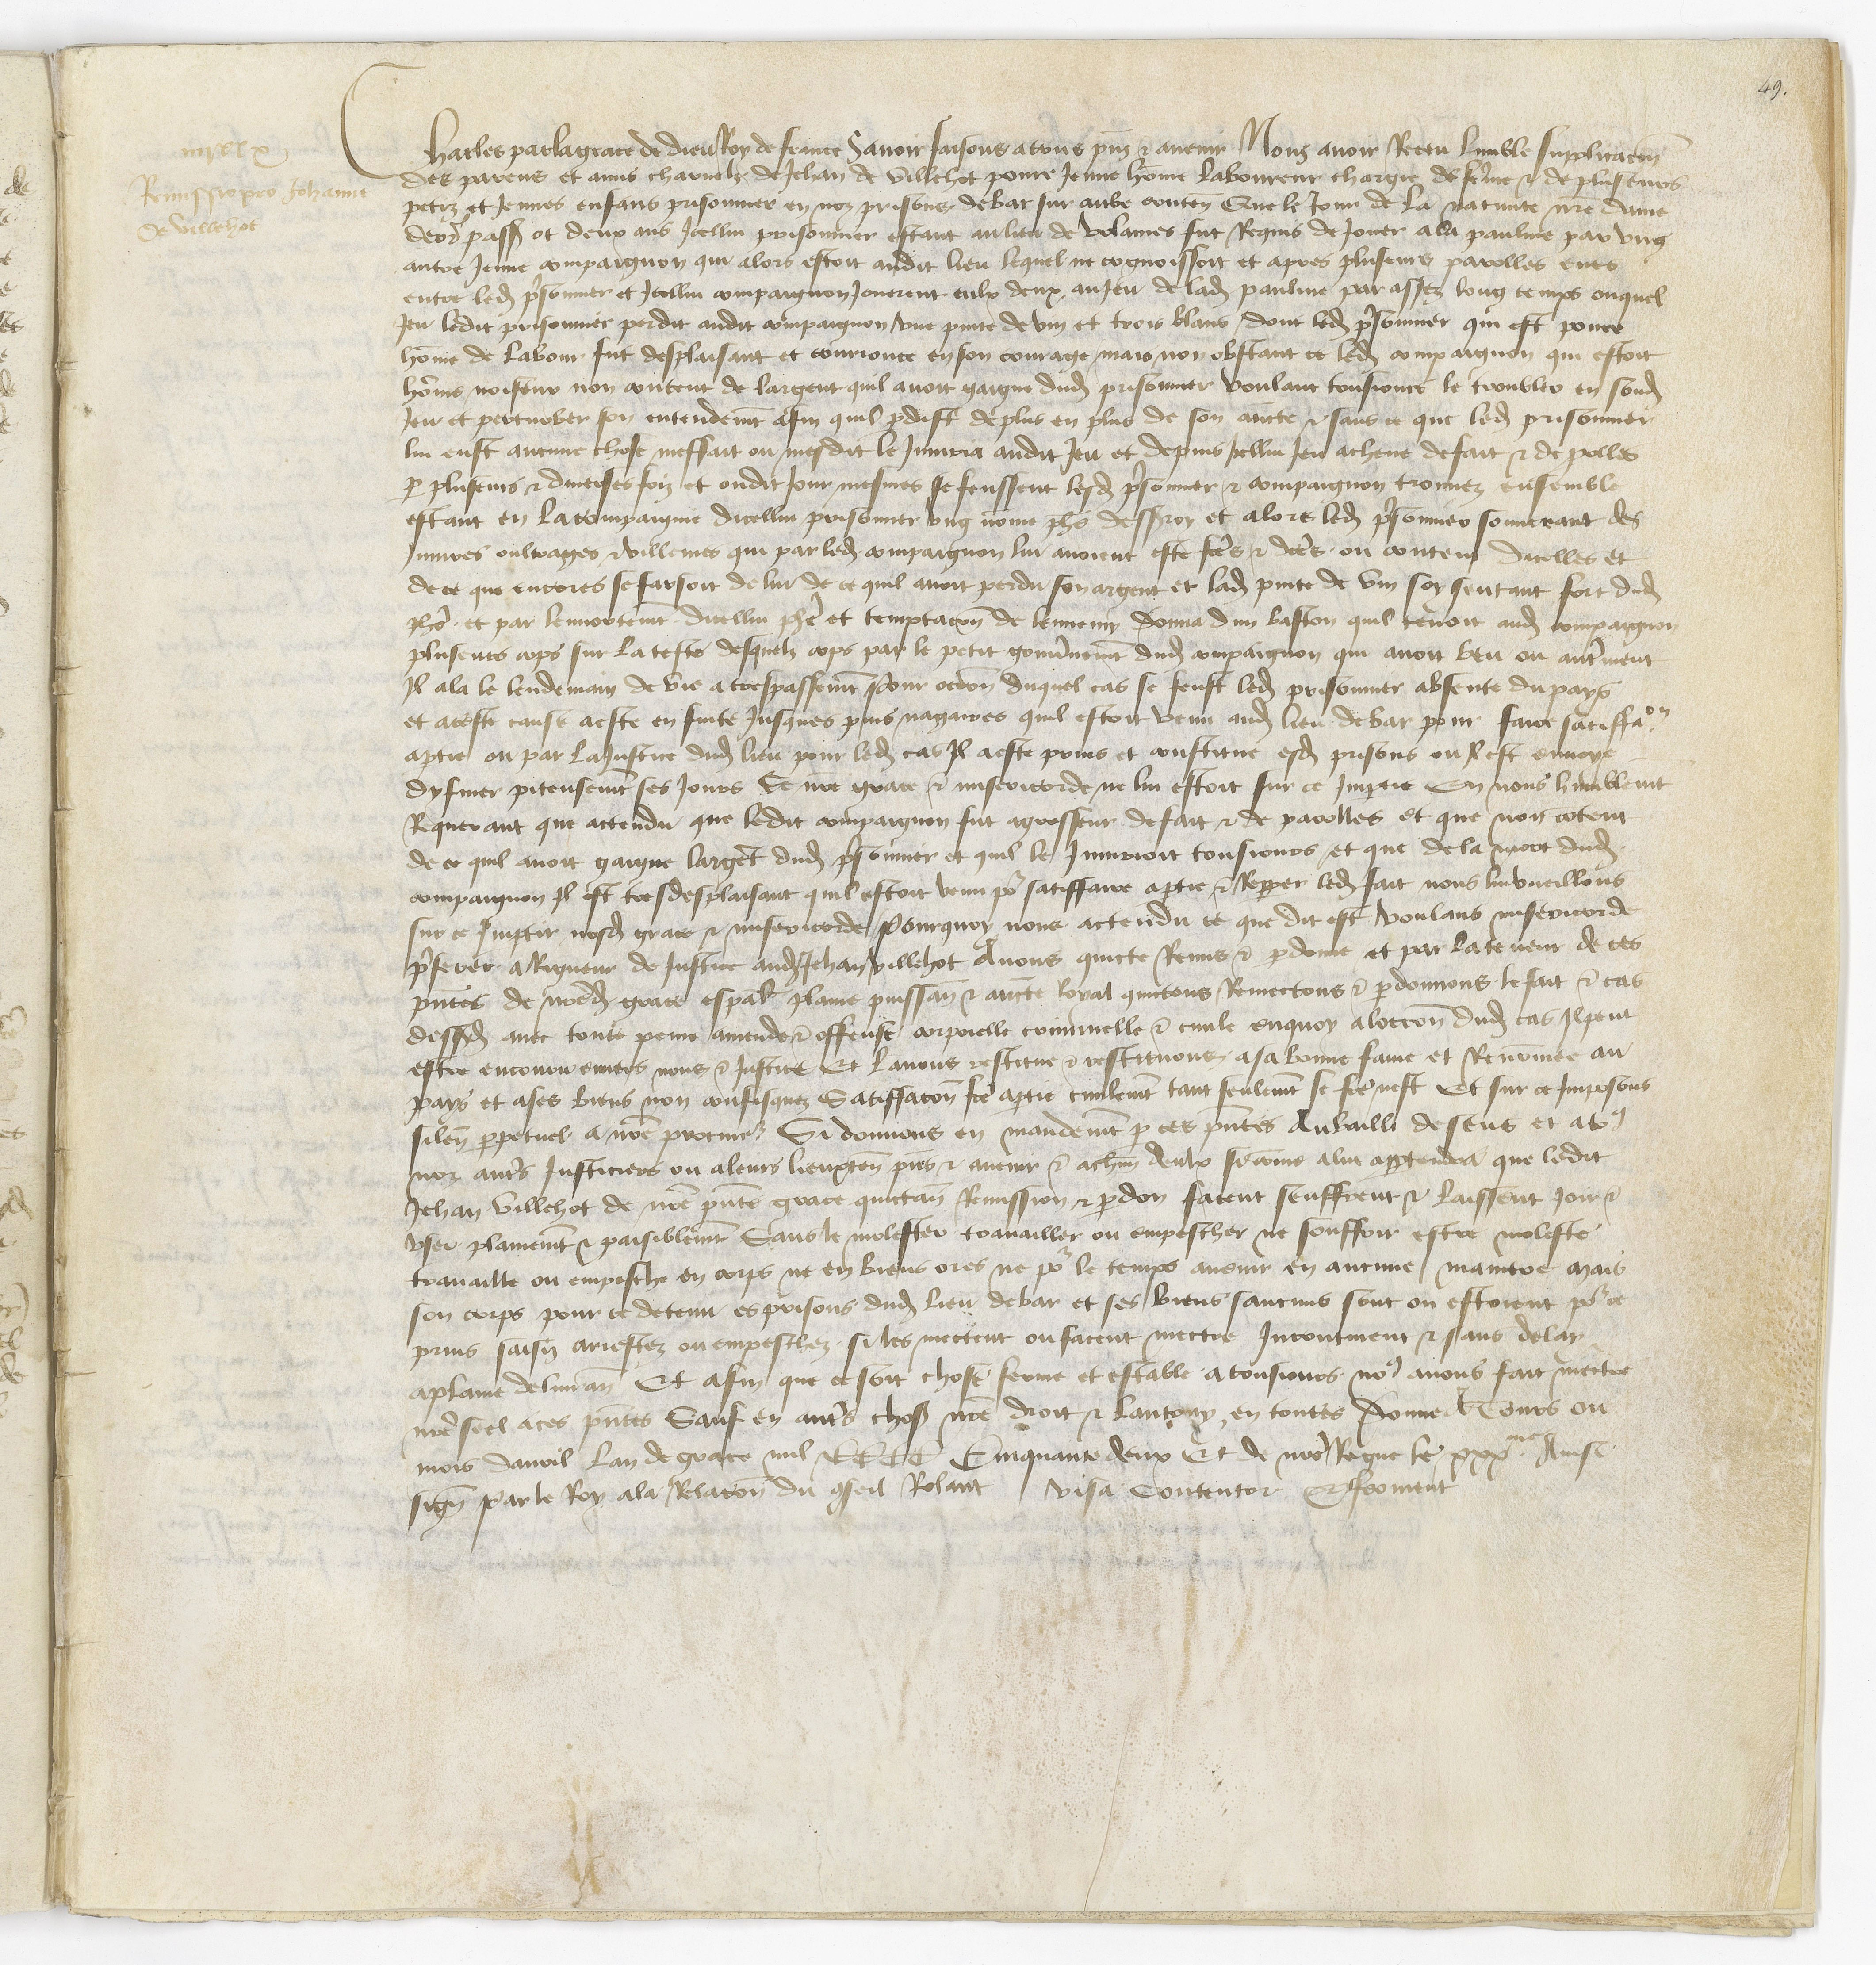 49.
iiiixx x
Remissio pro Johanne
de Villehot
Charles par la grace de dieu Roy de france Savoir faisons a tous pns et avenir Nous avoir Receu lumble supplicacion
des parens et amis charnelz de Jehan de Villehot povre Jeune home laboureur chargie de feme et de plusieurs
petiz et Jeunes enfans prisonnier en noz prisons de bar sur aube conten Que le Jour de la nativite nre dame
derr passe ot deux ans Icellui prisonnier estant au lieu de volaines fut Requis de Jouer a la paulme par ung
autre Jeune compaignon qui alors estoit audit lieu lequel ne cognoissoit et apres plusieurs parolles eues
entre led prisonnier et Icellui compaignon Jouerent eulx deux au Jeu de lad paulme par assez long temps ouquel
Jeu ledit prisonnier perdit audit compaignon une pinte de vin et trois blans dont led prisonnier qui est povre
home de labour fut desplaisant et courrouce en son courage mais non obstant ce led compaignon qui estoit
homs noiseux non content de largent quil avoit gaigne dud prisonnier voulant tousiours le troubler en sond
Jeu et perturber son entendemt afin quil perdist de plus en plus de son et sans ce que led prisonnier
lui eust aucune chose meffait ou mesdit le Iniuria audit Jeu et depuis Icellui Jeu acheve de fait et de polles
p plusieurs et diverses foiz et oudit Jour mesmes se feussent lesd prisonnier et compaignon trouvez ensemble
estant en la compaignie dicellui prisonnier ung nome phe et alors led prisonnier souvenant des
Iniures oultrages et villenies qui par led compaignon lui avoient este fces et dces ou contenu dicelles et
de ce que encores se farsoit de lui de ce quil avoit perdu son argent et lad pinte de vin soy sentant fort dud
phe et par lennortemt dicellui phe et temptacion de lennemy donna dun baston quil tenoit aud compaignon
plusieurs cops sur la teste desquelz cops par le petit gouvernemt dud compaignon qui avoit beu ou autrement
Il ala le lendemain de vie a trespassemt pour occon duquel cas se feust led prisonnier absente du pays
et a ceste cause a este en fuite Jusques puis nagaires quil estoit venu aud lieu de bar pour faire satiffaon
a ptie ou par la Justice dud lieu pour led cas Il a este prins et constitue esd prisons ou Il est en voye
dy finer piteusemt ses Jours Se nre grace et misericorde ne lui estoit sur ce Impartie En nous humblemt
Requerant que actendu que ledit compaignon fut agresseur de fait et de parolles et que non cotent
de ce quil avoit gaigne largent dud prisonnier et quil le Iniurioit tousiours et que de la mort dud
compaignon Il est tres desplaisant quil estoit venu por satiffaire a ptie et Repper led fait nous lui vueillons
sur ce Imptir nosd grace et misericorde Pourquoy nous actendu ce que dit est Voulans misericorde
preferer a Rigueur de Justice aud Jehan villehot Avons quicte Remis et pdonne et par la teneur de ces
pntes de nred grace espal plaine puissan et aucte Royal quictons Remectons et pdonnons le fait et cas
dessusd avec toute peine amende et offense corporelle criminelle et civile en quoy a locccon dud cas Il peut
estre encouru envers nous et Justice Et lavons restitue et restituons a sa bonne fame et Renomee au
pays et a ses biens non confisquez Satiffacon fce a ptie civilemt tant seulemt se fce nest Et sur ce Imposons
silen ppetuel a nre procur Si donnons en mandemt p ces pntes Au bailli de sens et a to9
noz autrs Justiciers ou a leurs lieuxten pns et avenir et a chun deulx si come a lui apptendra que ledit
Jehan villehot de nre pnte grace quictan Remission et pdon facent seuffrent et laissent Joir et
user plainemt et paisiblemt Sans le molester travailler ou empescher ne souffrir estre moleste
travaille ou empesche en corps ne en biens ores ne por le temps avenir en aucune maniere Mais
son corps pour ce detenu es prisons dud lieu de bar et ses biens saucuns sont ou estoient por ce
prins saisiz arrestez ou empeschez si les mectent ou facent mectre Incontinent et sans delay
a plaine delivran Et afin que ce soit chose ferme et estable a tousiours no9 avons fait mectre
nre seel a ces pntes Sauf en autrs choses nre droit et lautruy en toutes Donne a Tours ou
mois davril Lan de grace mil CCCC Cinquante deux Et de nre Regne le xxxme Ainsi
sign Par le Roy a la Relacon du conseil Rolant Visa Contentor E Froment